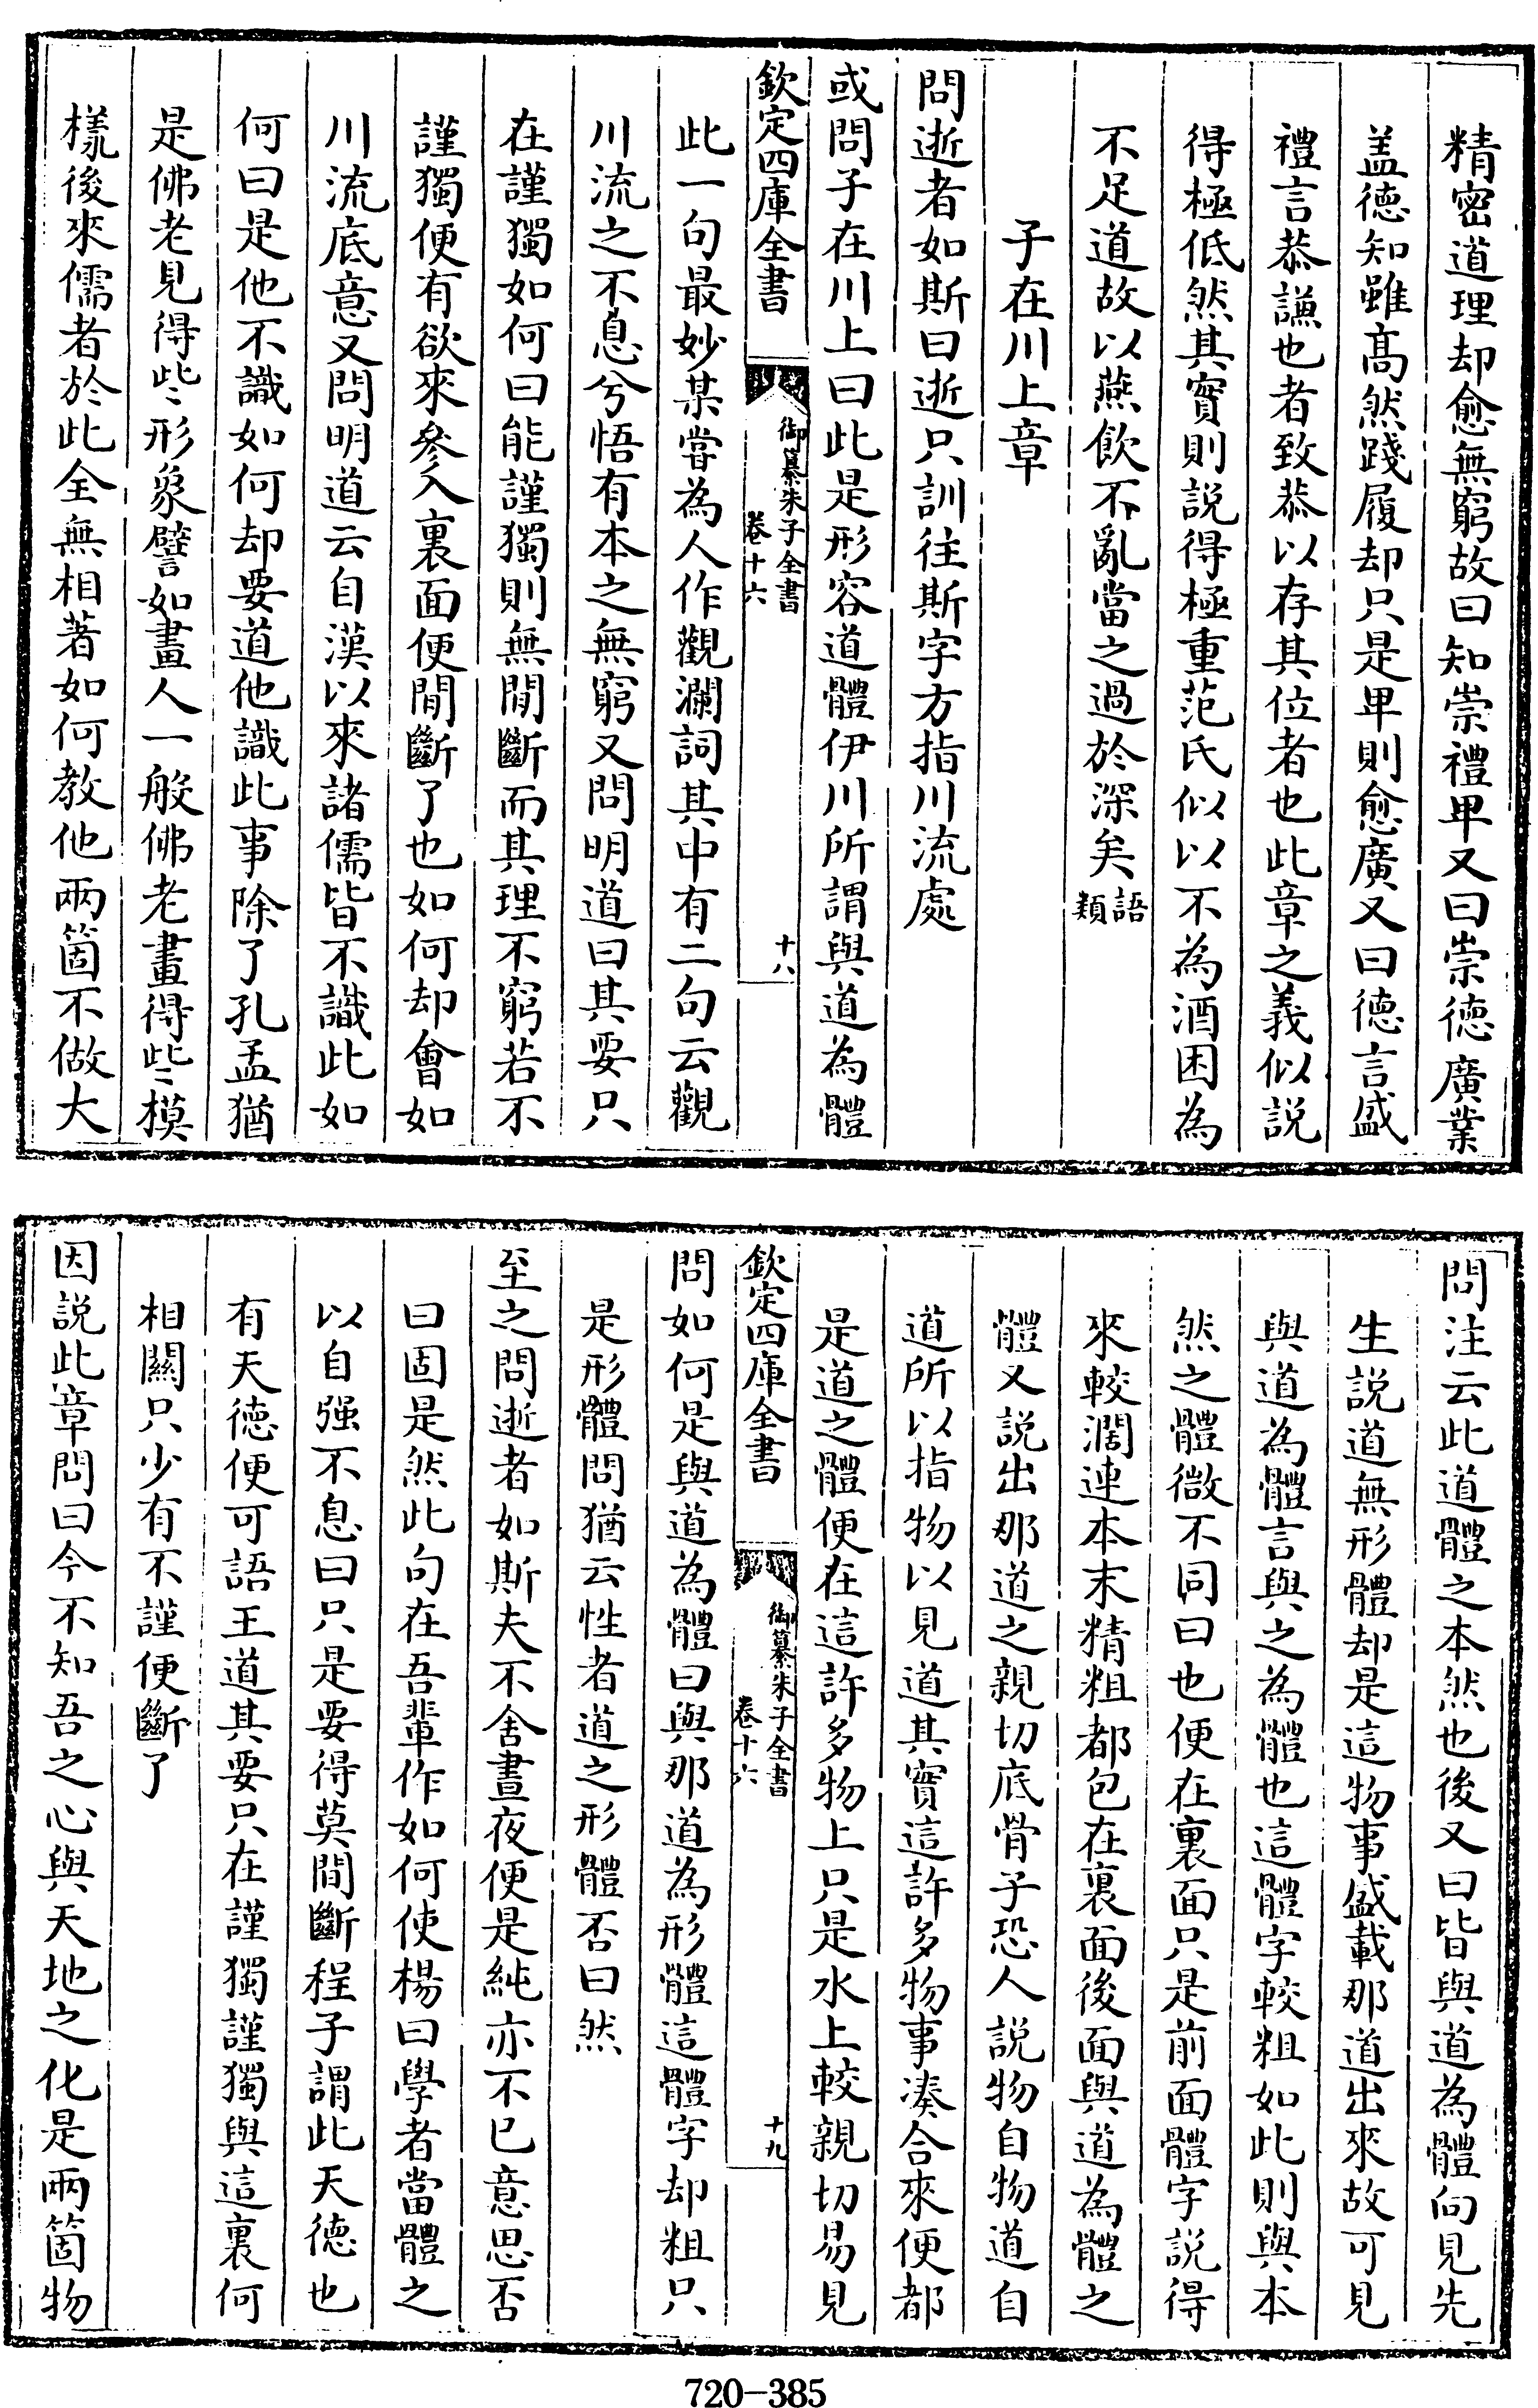 精密道理却愈無窮故曰知崇禮卑又曰崇德廣業
盖德知雖髙然踐履却只是卑則愈廣又曰德言盛
禮言恭謙也者致恭以存其位者也此章之義似説
得極低然其實則説得極重范氏似以不為酒困為
不足道故以燕飲不亂當之過於深矣語類
子在川上章
問逝者如斯曰逝只訓往斯字方指川流處
或問子在川上曰此是形容道體伊川所謂與道為體
欽定四庫全書
御纂朱子全書
卷十六
十八
此一句最妙某嘗為人作觀瀾詞其中有二句云觀
川流之不息兮悟有本之無窮又問明道曰其要只
在謹獨如何曰能謹獨則無間斷而其理不窮若不
謹獨便有欲來參入裏面便間斷了也如何却會如
川流底意又問明道云自漢以來諸儒皆不識此如
何曰是他不識如何却要道他識此事除了孔孟猶
是佛老見得些形象譬如畫人一般佛老畫得些模
樣後來儒者於此全無相著如何教他兩箇不做大
問注云此道體之本然也後又曰皆與道為體向見先
生説道無形體却是這物事盛載那道出來故可見
與道為體言與之為體也這體字較粗如此則與本
然之體微不同曰也便在裏面只是前面體字説得
來較濶連本末精粗都包在裏面後面與道為體之
體又説出那道之親切底骨子恐人説物自物道自
道所以指物以見道其實這許多物事湊合來便都
是道之體便在這許多物上只是水上較親切易見
欽定四庫全書
御纂朱子全書
卷十六
十九
問如何是與道為體曰與那道為形體這體字却粗只
是形體問猶云性者道之形體否曰然
至之問逝者如斯夫不舍晝夜便是純亦不已意思否
曰固是然此句在吾輩作如何使楊曰學者當體之
以自强不息曰只是要得莫間斷程子謂此天德也
有天德便可語王道其要只在謹獨謹獨與這裏何
相關只少有不謹便斷了
因説此章問曰今不知吾之心與天地之化是兩箇物
720-385